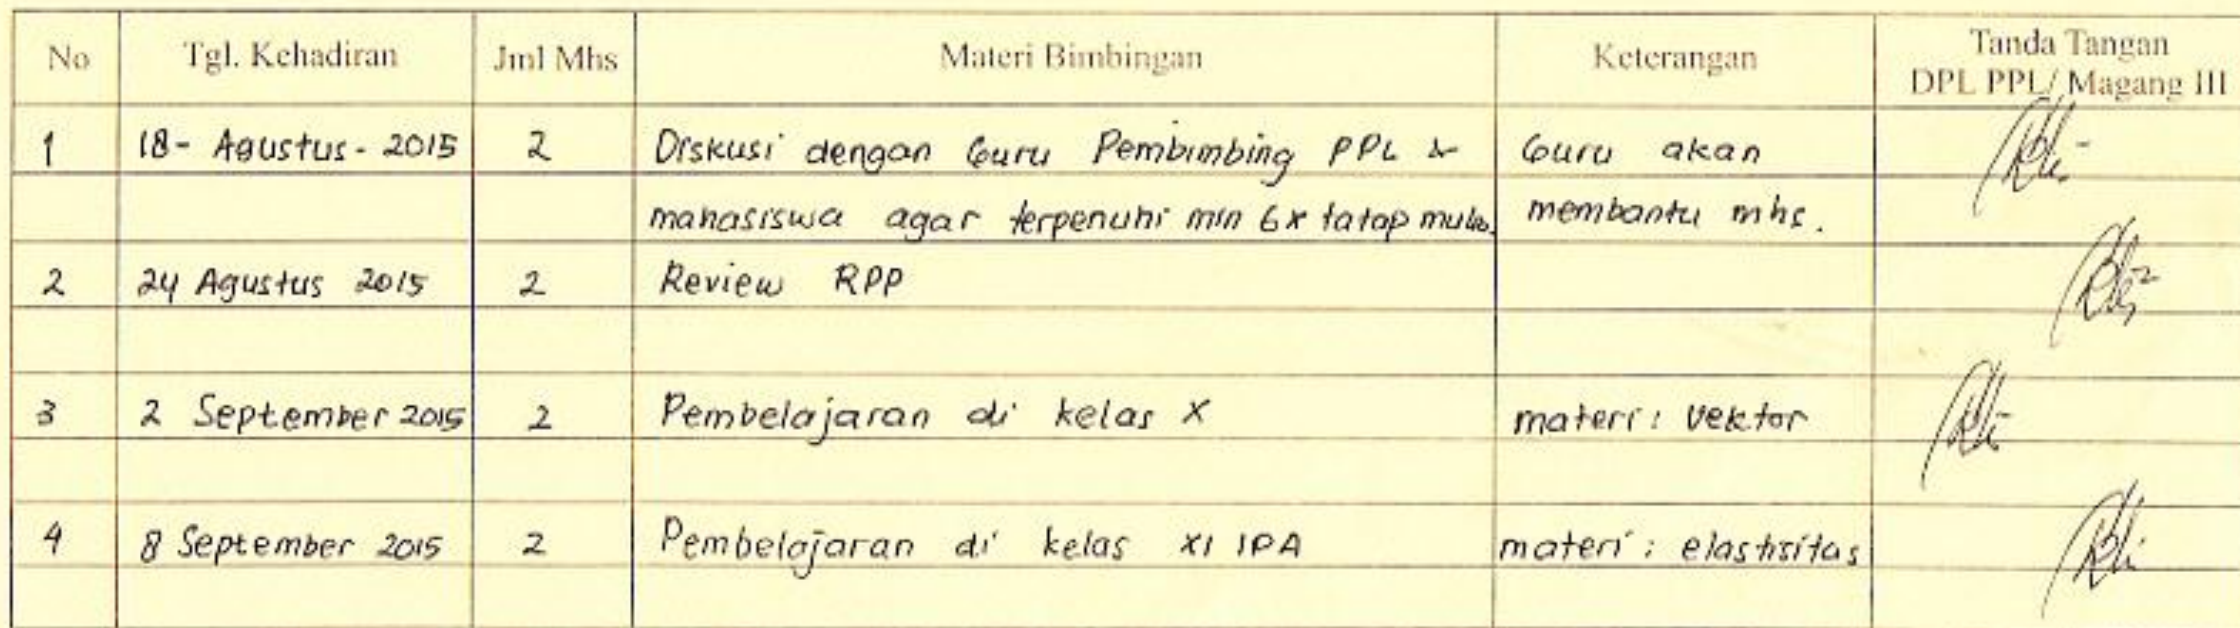 No Tgl. Kehadiran Jml Mhs Materi Bimbingan Keterangan Tanda Tangan
DPL PPL/ Magang III
1 18- Agustus - 2015 2 Diskusi dengan Guru Pembimbing PPL & Guru akan
mahasiswa agar terpenuhi min 6x tatap muka. membantu mhs.
2 24 Agustus 2015 2 Review RPP
3 2 September 2015 2 Pembelajaran di kelas X materi : Vektor
4 8 September 2015 2 Pembelajaran di kelas XI IPA materi : elastisitas